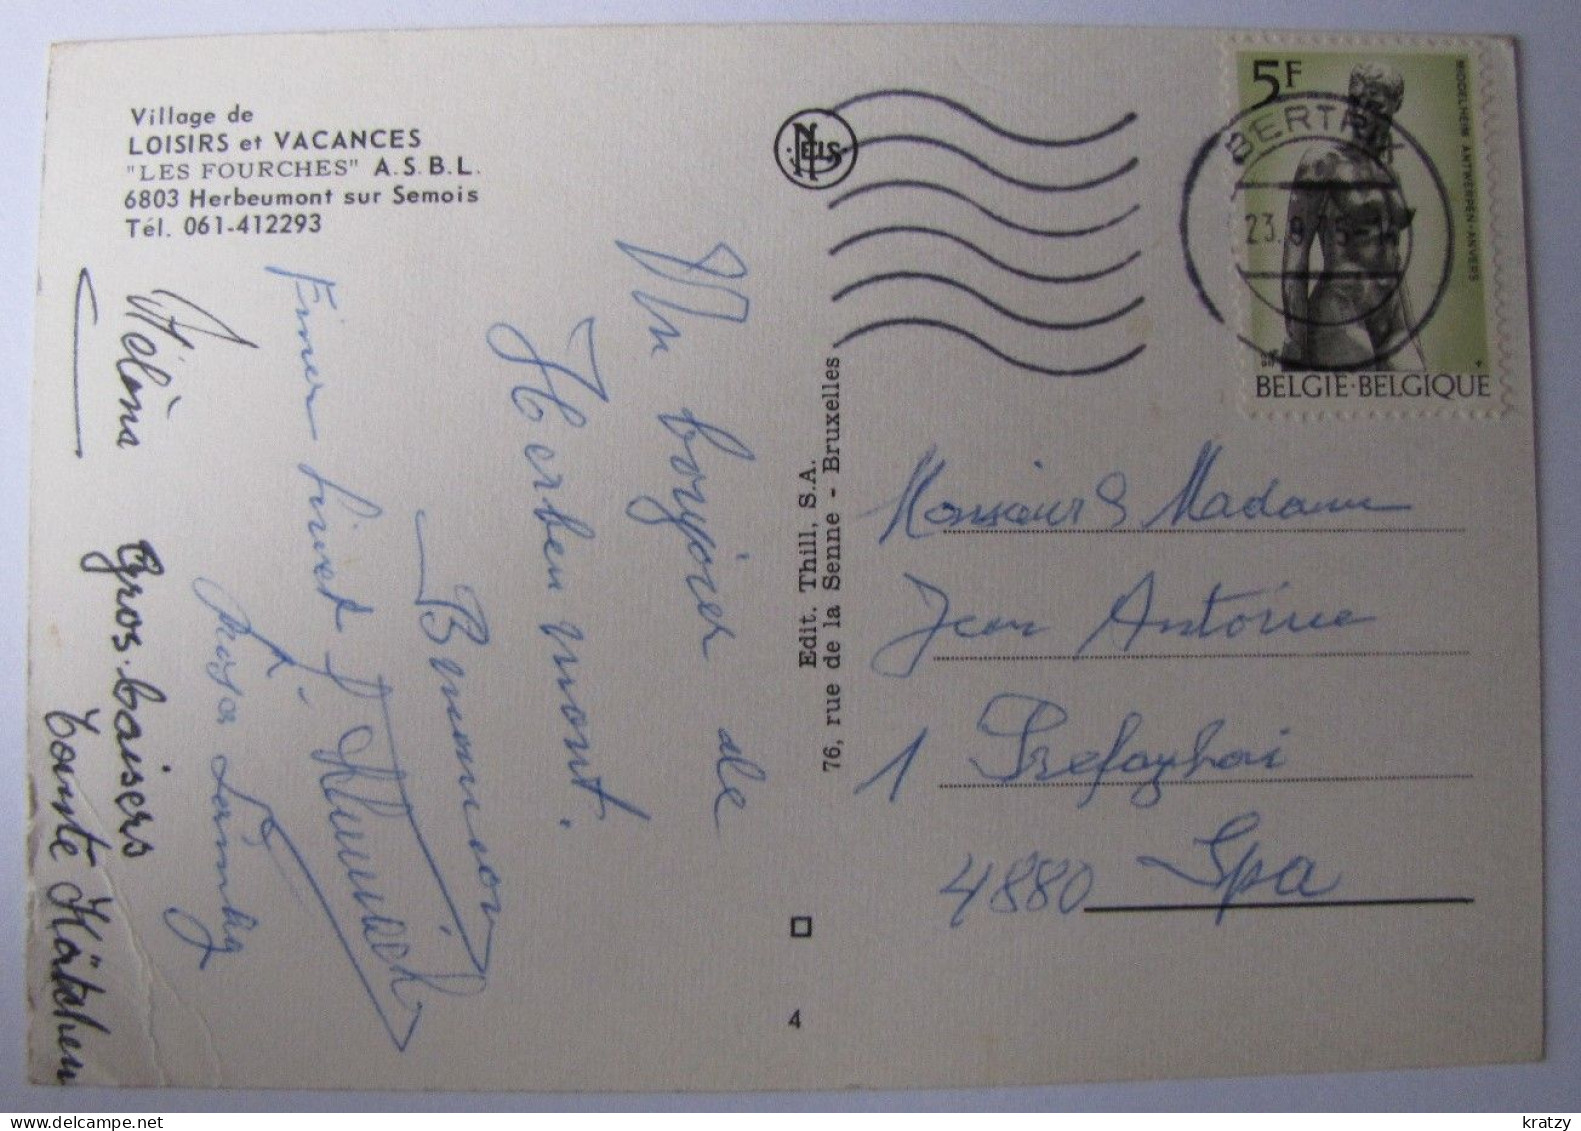 Village de
LOISIRS et VACANCES
"LES FOURCHES" A.S.B.L.
6803 Herbeumont sur Semois
Tél. 061-412293
NELS
5F
MIDDELHEIM ANTWERPEN-ANVERS
BELGIE·BELGIQUE
BERTRIX
23.9.75-1
Edit. Thill, S.A.
76, rue de la Senne - Bruxelles
4
Un bonjour de
Herbeumont.
Rosa
Hélèna
Gros baisers
Tante Kätchen
Monsieur & Madame
Jean Antoine
1 Préfayhai
4880 Spa
kratzy